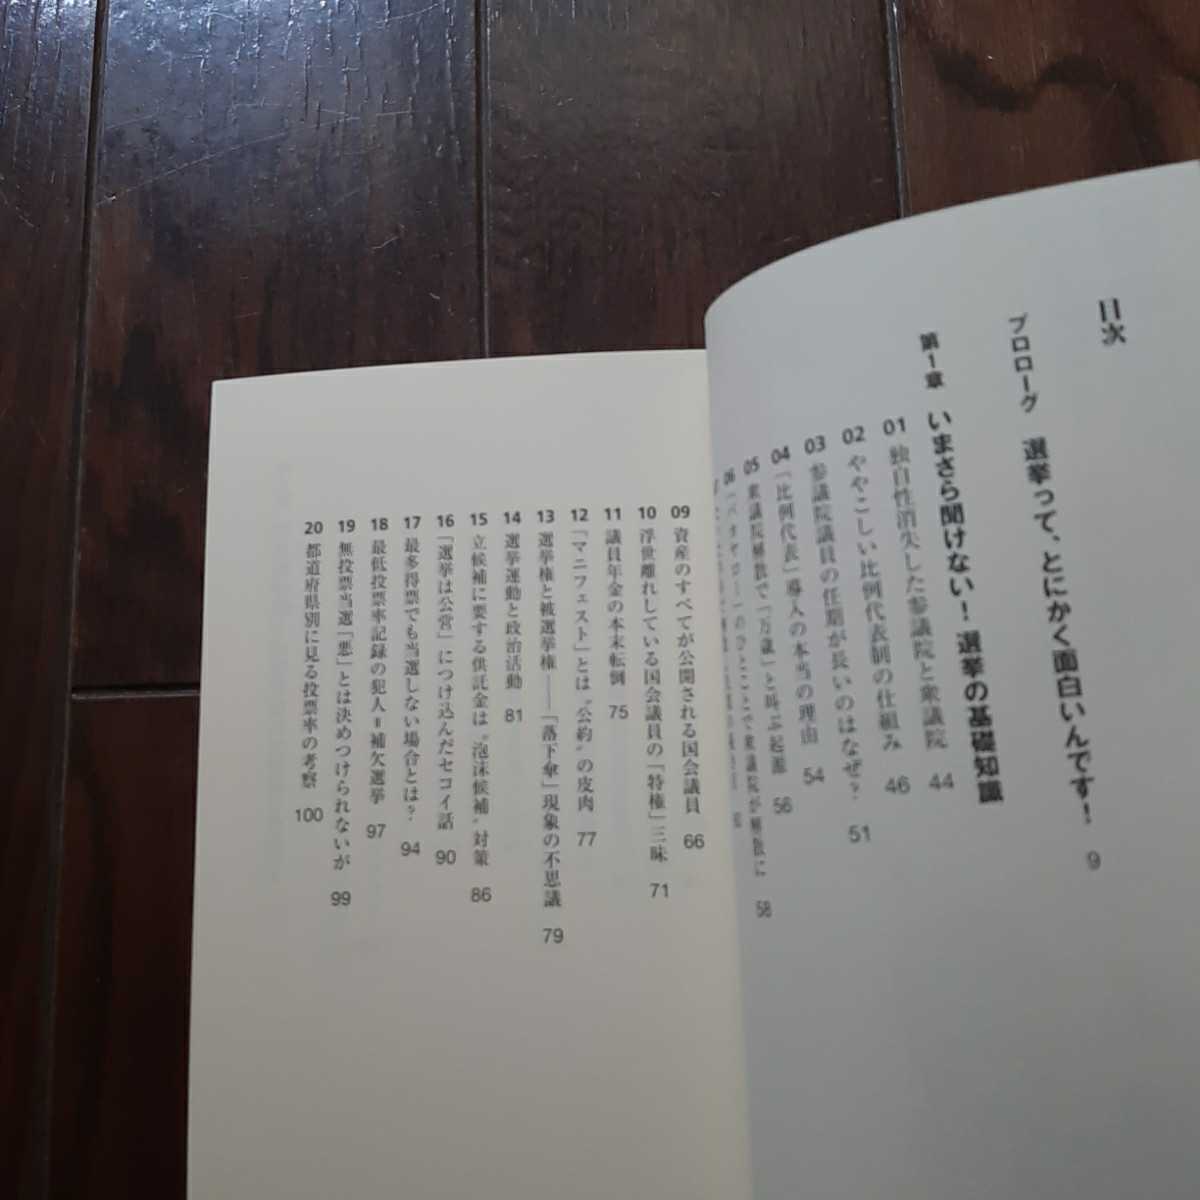 目次
プロローグ 選挙って、とにかく面白いんです! 9
第1章 いまさら聞けない! 選挙の基礎知識
01 独自性消失した参議院と衆議院 44
02 ややこしい比例代表制の仕組み 46
03 参議院議員の任期が長いのはなぜ? 51
04 「比例代表」導入の本当の理由 54
05 衆議院解散で「万歳」と叫ぶ起源 56
06 「バカヤロー」のひとことで衆議院が解散に 58
09 資産のすべてが公開される国会議員 66
10 浮世離れしている国会議員の「特権」三昧 71
11 議員年金の本末転倒 75
12 「マニフェスト」とは〝公約〟の皮肉 77
13 選挙権と被選挙権——「落下傘」現象の不思議 79
14 選挙運動と政治活動 81
15 立候補に要する供託金は〝泡沫候補〟対策 86
16 「選挙は公営」につけ込んだセコイ話 90
17 最多得票でも当選しない場合とは? 94
18 最低投票率記録の犯人=補欠選挙 97
19 無投票当選「悪」とは決めつけられないが 99
20 都道府県別に見る投票率の考察 100